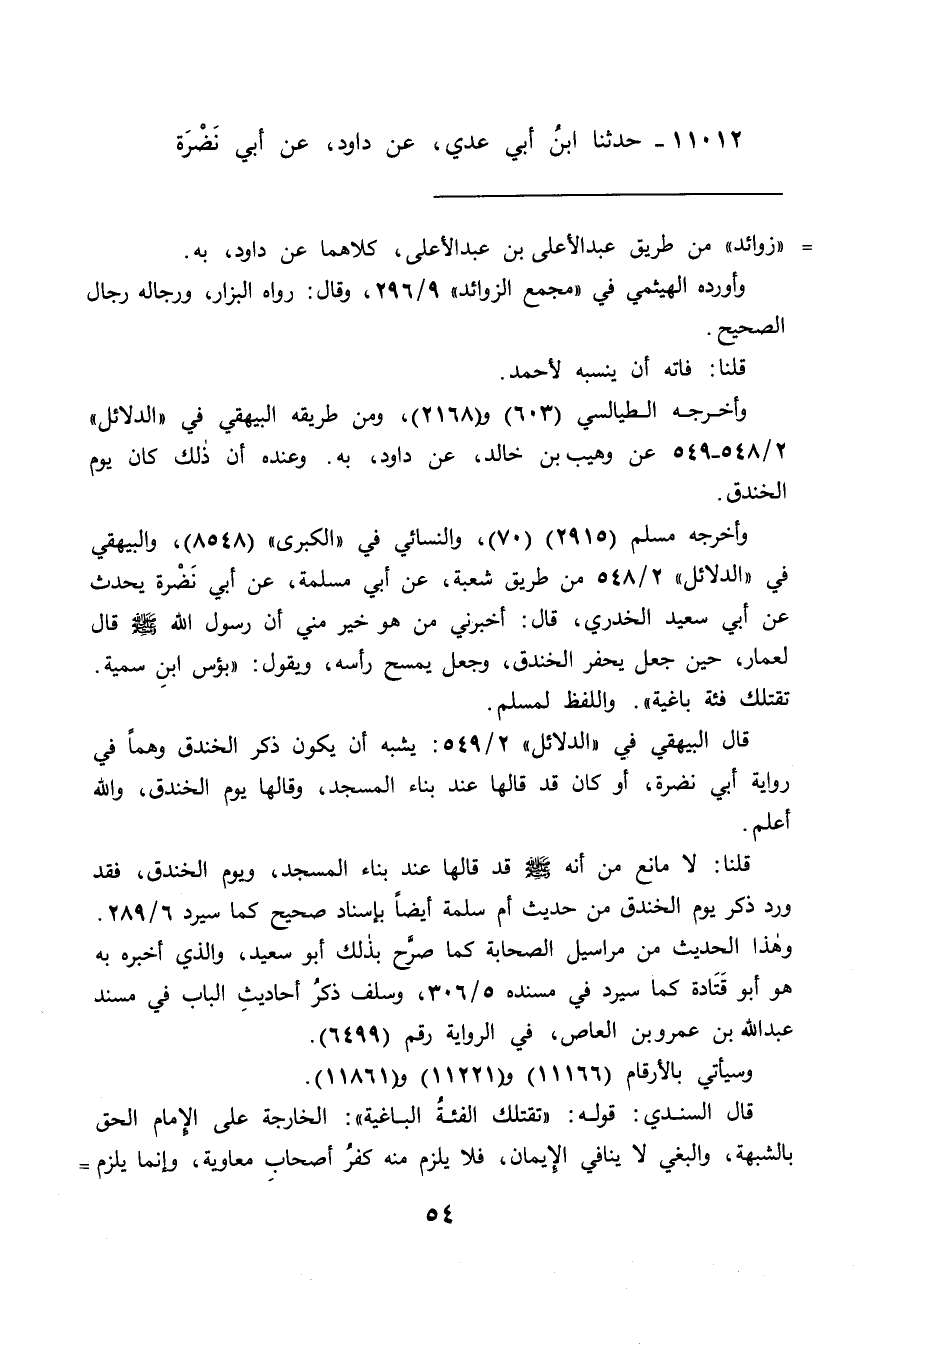 ١١٠١٢ - حدثنا ابنُ أبي عدي، عن داود، عن أبي نَضْرَة
= «زوائد» من طريق عبدالأعلى بن عبدالأعلى، كلاهما عن داود، به.
وأورده الهيثمي في «مجمع الزوائد» ٢٩٦/٩، وقال: رواه البزار، ورجاله رجال
الصحيح.
قلنا: فاته أن ينسبه لأحمد.
وأخرجه الطيالسي (٦٠٣) و(٢١٦٨)، ومن طريقه البيهقي في «الدلائل»
٥٤٨/٢-٥٤٩ عن وهيب بن خالد، عن داود، به. وعنده أن ذٰلك كان يوم
الخندق.
وأخرجه مسلم (٢٩١٥) (٧٠)، والنسائي في «الكبرى» (٨٥٤٨)، والبيهقي
في «الدلائل» ٥٤٨/٢ من طريق شعبة، عن أبي مسلمة، عن أبي نَضْرة يحدث
عن أبي سعيد الخدري، قال: أخبرني من هو خير مني أن رسول الله ﷺ قال
لعمار، حين جعل يحفر الخندق، وجعل يمسح رأسه، ويقول: «بؤس ابنِ سمية.
تقتلك فئة باغية». واللفظ لمسلم.
قال البيهقي في «الدلائل» ٥٤٩/٢: يشبه أن يكون ذكر الخندق وهماً في
رواية أبي نضرة، أو كان قد قالها عند بناء المسجد، وقالها يوم الخندق، والله
أعلم.
قلنا: لا مانع من أنه ﷺ قد قالها عند بناء المسجد، ويوم الخندق، فقد
ورد ذكر يوم الخندق من حديث أم سلمة أيضاً بإسناد صحيح كما سيرد ٢٨٩/٦.
وهٰذا الحديث من مراسيل الصحابة كما صرَّح بذٰلك أبو سعيد، والذي أخبره به
هو أبو قَتَادة كما سيرد في مسنده ٣٠٦/٥، وسلف ذكرُ أحاديثِ الباب في مسند
عبدالله بن عمرو بن العاص، في الرواية رقم (٦٤٩٩).
وسيأتي بالأرقام (١١١٦٦) و(١١٢٢١) و(١١٨٦١).
قال السندي: قوله: «تقتلك الفئةُ الباغية»: الخارجة على الإمام الحق
بالشبهة، والبغي لا ينافي الإيمان، فلا يلزم منه كفرُ أصحابِ معاوية، وإنما يلزم =
٥٤